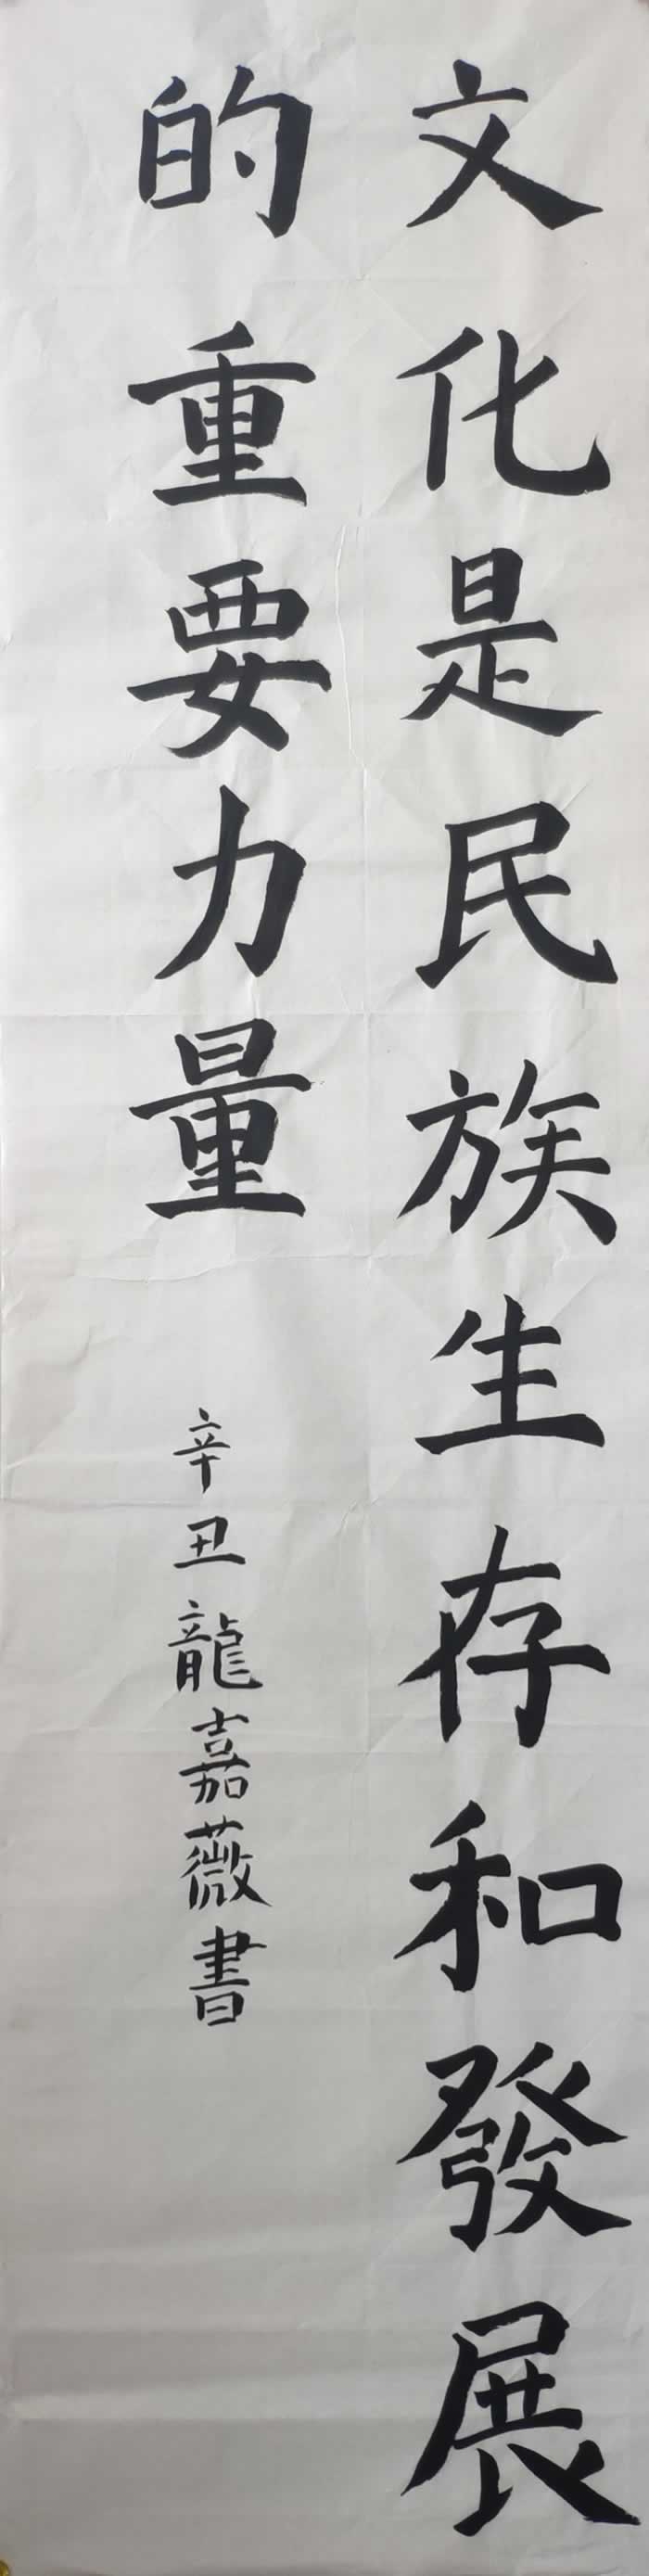 文化是民族生存和發展
的重要力量
辛丑龍嘉薇書